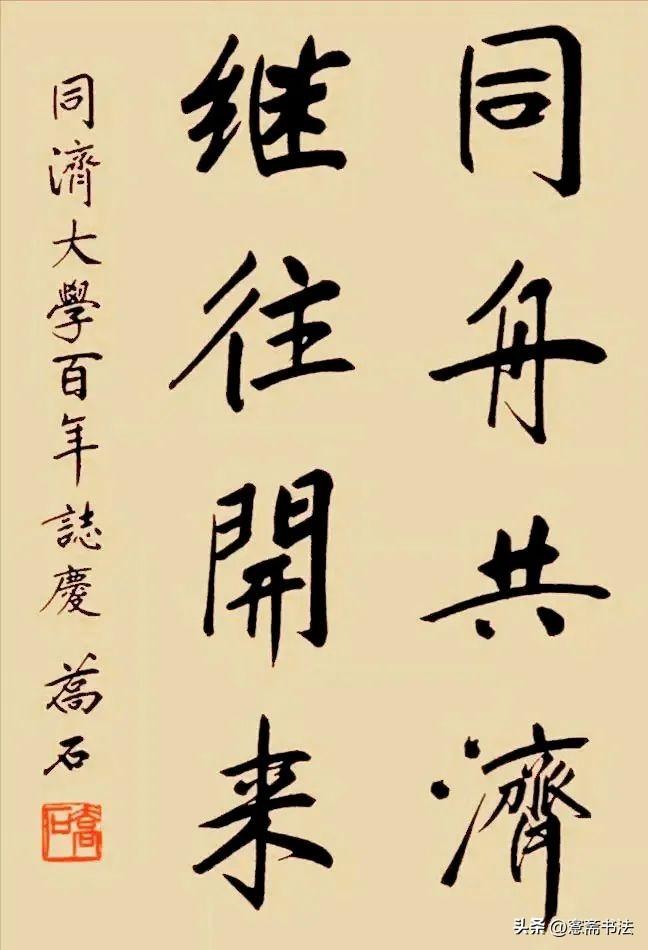 同舟共濟
继往開来
同濟大學百年誌慶 喬石
喬石
头条 @憲斋书法